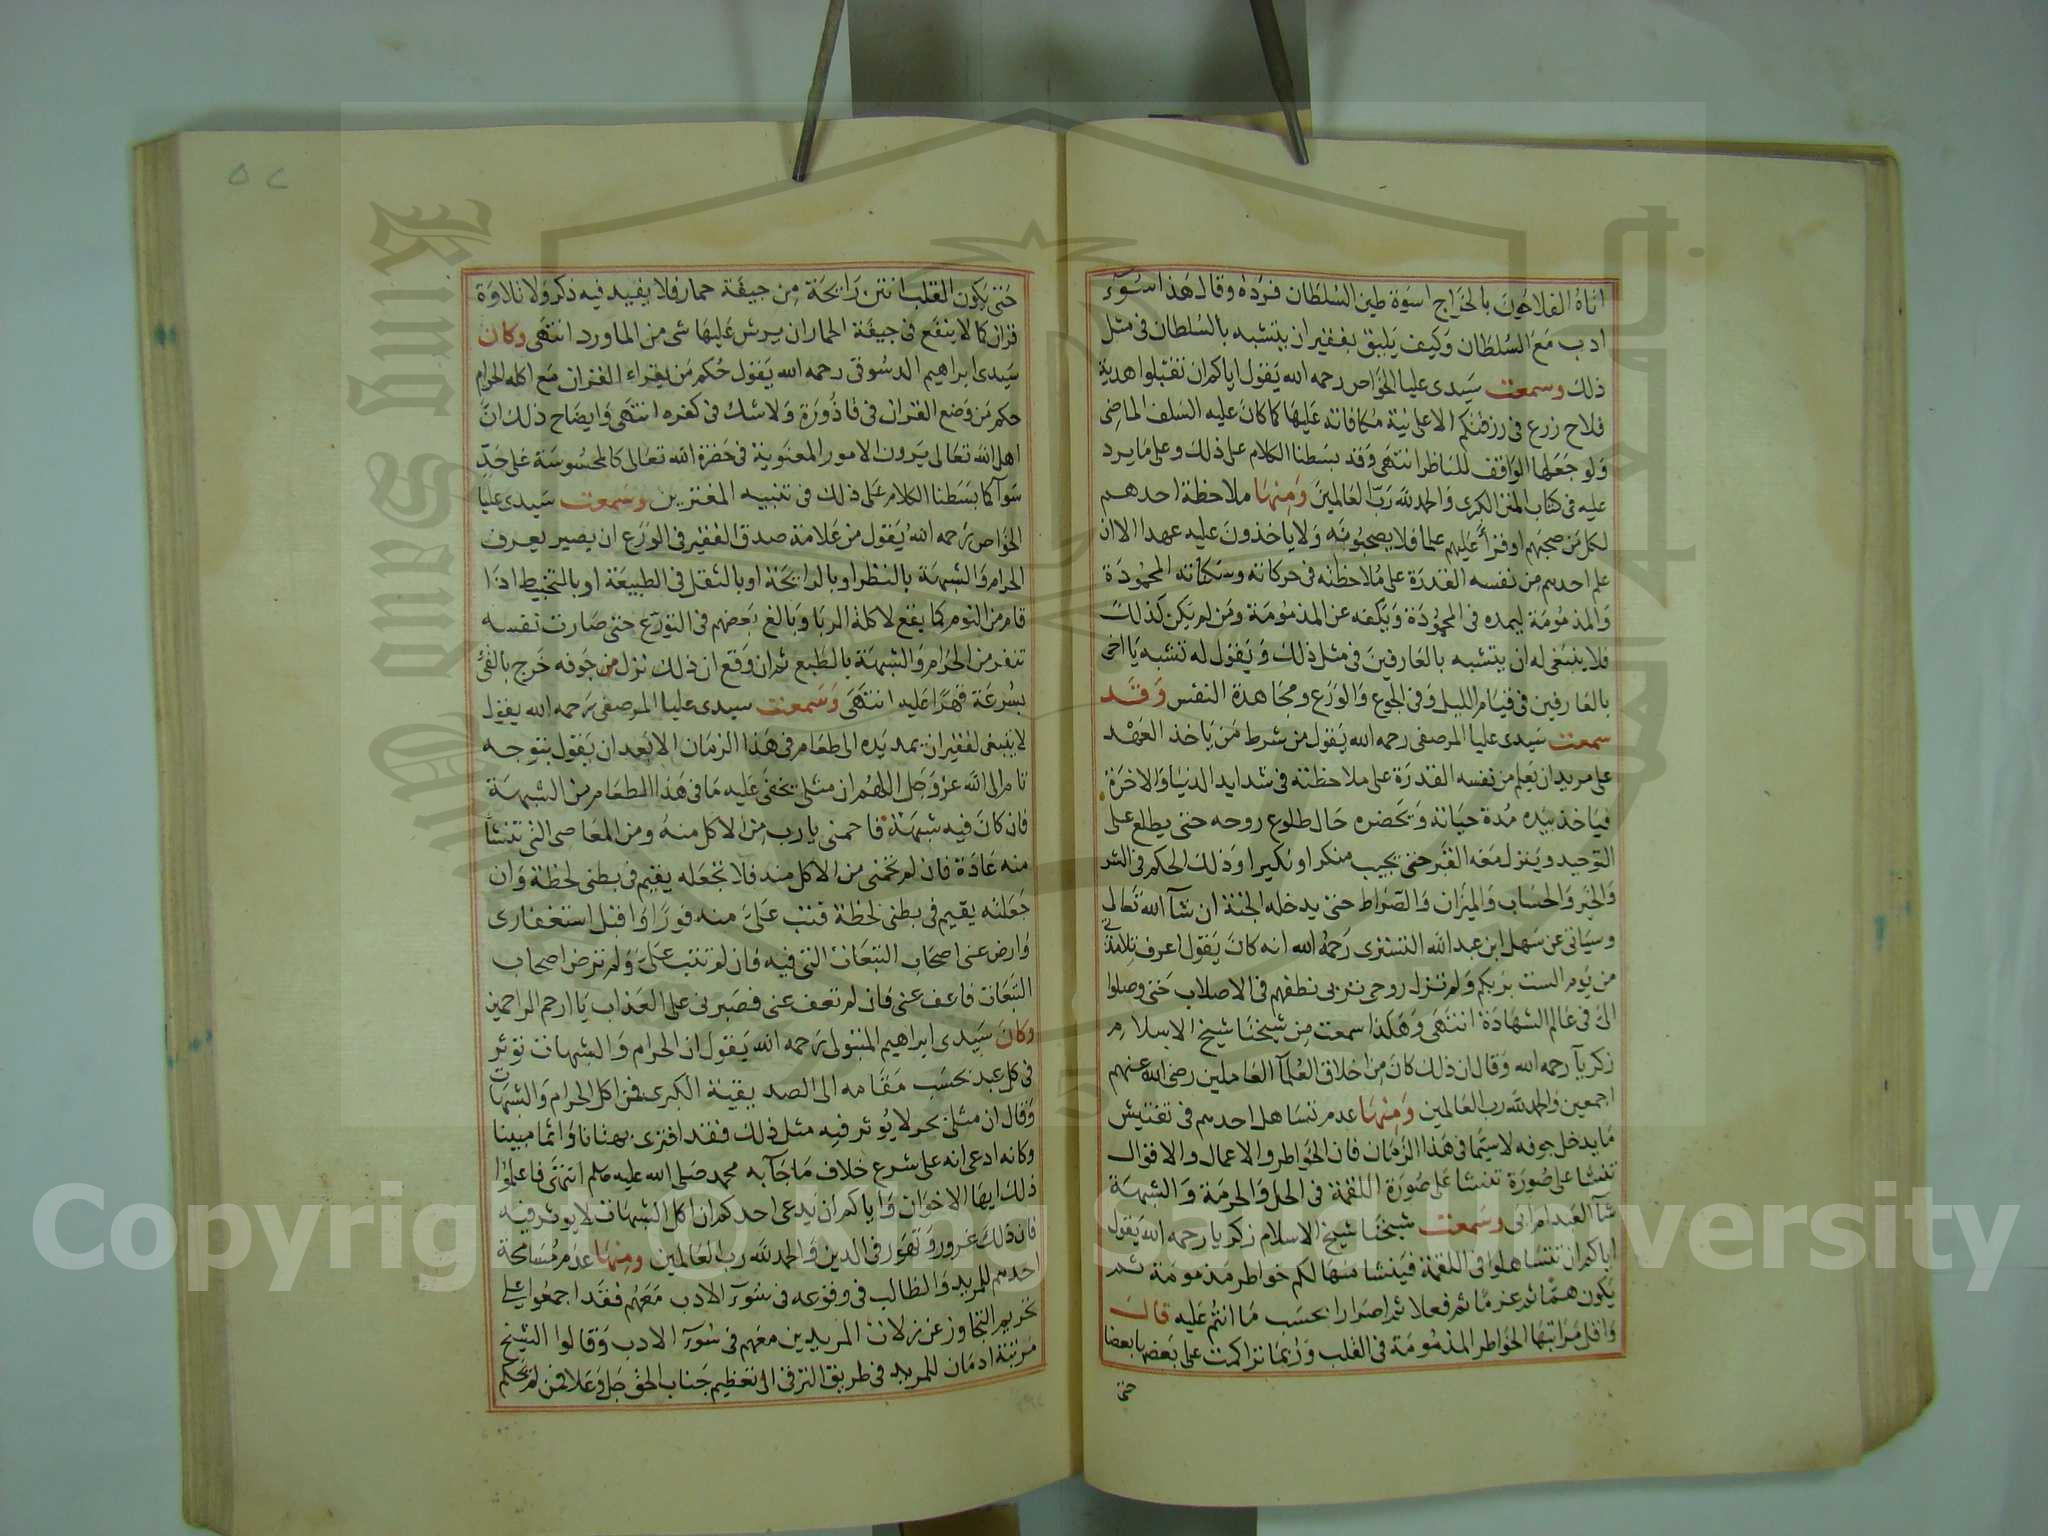 اتاهُ الفلاحُونَ بالخَرَاج اسوَة طين السُلطان فردّه وقال هَذا سُوء
ادب مَعَ السُلطان وَكيف يَليق بفقير ان يتشبه بالسُلطان فى مثل
ذلك وسمعت سَيدى عليا الخوّاص رحمه الله يَقول اياكم ان تقبلوا هدية
فلاح زرع فى رزقتكم الا على نية مكافاته عَليهَا كما كانَ عليه السَلف الماضى
وَلو جَعَلها الوَاقف للناظر انتهى وَقد بسَطنا الكلام على ذلك وعلى مَا يرد
عليه فى كتاب المنن الكبرى وَالحمد لله رَبّ العَالمينَ وَمِنهَا ملاحظة احدهم
لكل مَن صحبَهم او قرأ عَليهم علما فلا يصحبُونه وَلا ياخذونَ عليه عهدا الا ان
علم احدهم من نفسه القدرَة على مُلاحظته فى حركاته وسكناته المحمُودَة
وَالمذمُومَة ليمده فى المحمُودَة وَيَكفه عن المذمُومَة ومَن لم يكن كذلكَ
فلا ينبَغى له ان يتشبه بالعَارفينَ فى مثل ذلكَ وَيَقول له تشبه يَا اخى
بالعَارفين فى قيَام الليل وَفى الجُوع وَالوَرَع ومجَاهدة النفس وَقَد
سمعت سَيدى عليا المرصفى رحمه الله يَقول من شرط مَن يَاخذ العَهْد
على مريد ان يَعلم من نفسه القدرَة على ملاحظته فى شدايد الدنيَا وَالاخرَة
فيَاخذ بيَده مُدة حيَاته وَيَحضره حَال طلوع روحه حتى يطلع على
التوحيد وَينزل مَعَه القبر حتى يجيب منكرا ونكيرا وَذلكَ الحكم فى النشر
وَالحشر وَالحسَاب وَالميزان وَالصّراط حتى يدخله الجنة ان شآ الله تعَالى
وسيَاتى عن سَهل ابن عبد الله التسترى رَحمهُ الله انه كانَ يَقول اعرف تلامذتى
من يَوم الست بربكم وَلم تزل روحى تربى نطفهم فى الاصلاب حَتى وصلوا
الىّ فى عَالم الشهَادَة انتهَى وَهَكذا سمعت مِن شيخنا شيخ الاسلام
زكريآ رحمه الله وَقال ان ذلك كانَ من اخلاق العُلمآ العَاملين رضى الله عنهم
اجمعين وَالحمد لله رب العَالمين وَمِنهَا عدم تسَاهل احدهم فى تفتيش
مَا يدخل جوفه لا سيّما فى هَذا الزمَان فان الخوَاطر والاعمال والاقوال
تنشا على صُورَة تنشا عَلى صُورَة اللقمَة فى الحل وَالحرمَة وَالشبهَة
شآ العَبد ام ابى وسَمعت شيخنَا شيخ الاسلام زكريا رحمه الله يَقول
اياكم ان تتسَاهلوا فى اللقمَة فيَنشا منهَا لكم خواطر مَذمومَة ثم
يَكون همّا ثم عزمًا ثم فعلا ثم اصرَارا بحسَب مَا انتم عَليه قالَ
وَاقل مَرَاتبهَا الخواطر المذمُومَة فى القلب وَرُبمَا تراكمت على بَعضها بعضا
حتى
حَتى يَكون القلب انتن رَايحَة من جيفة حمار فلا يفيد فيه ذكر وَلا تلاوَة
قران كما لا ينفع فى جيفة الحمار ان يرش عَليهَا شى من الماورد انتهَى وكان
سَيدى ابراهيم الدسُوقى رحمه الله يَقول حُكم مَن يقراء القران مَع اكله الحرام
حكم مَن وَضع القران فى قاذُورَة وَلا شك فى كفره انتهَى وَايضَاح ذلك انَّ
اهل الله تعَالى يَرون الامور المعنَوية فى حَضرَة الله تعَالى كالمحسُوسَة على حَدّ
سَوآ كما بسَطنا الكلام عَلى ذلك فى تنبيه المغترين وسَمعت سَيدى عليا
الخوّاص رَحمه الله يَقول من عَلامَة صدق الفقير فى الوَرَع ان يصير يعرف
الحرام وَالشبهَة بالنظر او بالرايحَة او بالثقل فى الطبيعَة او بالتخبيط اذا
قام من النوم كما يَقع لاكلة الربا وبَالغ بَعضهم فى التورّع حتى صَارت نفسه
تنفر من الحرَام وَالشبهَة بالطبع ثم ان وَقع ان ذلك نزل من جَوفه خَرج بالقئ
بسُرعَة قهرًا عَليه انتهَى وَسَمعت سيدى عليا المرصفى رَحمه الله يقول
لا ينبغى لفقير ان يمد يَده الى طعَام فى هَذا الزمَان الا بعد ان يَقول بتوجه
تام الى الله عز وَجل اللهُم ان مثلى يخفى عَليه مَا فى هَذا الطعَام من الشبهَة
فان كانَ فيه شبهَة فاحمنى يا رب من الاكل منهُ ومن المعَاصى التى تنشأ
منه عَادَة فان لم تحمنى من الاكل منه فلا تجعَله يقيم فى بطنى لحظة وَان
جَعلته يقيم فى بطنى لحظة فتب عَلىّ منه فورًا وَاقبل استغفارى
وَارض عنى اصحَاب التبعَات التى فيه فان لم تتب علىّ وَلم ترض اصحاب
التبَعات فاعف عنى فان لم تعف عنى فصَبرنى على العَذاب يَا ارحم الراحمين
وكانَ سَيدى ابراهيم المتبولى رَحمه الله يَقول ان الحرام وَالشبهات تؤثر
فى كل عبد بحسَب مَقامه الى الصديقية الكبرى فمن اكل الحرام وَالشبهَات
وَقال ان مثلى بحر لا يُوثر فيه مثل ذلك فقد افترى بهتانا وَاثما مبينا
وكانه ادعى انه على شرع خلاف مَا جآ به محمد صَلى الله عليه وسلم انتهَى فاعلموا
ذلك ايهَا الاخوَان وَاياكم ان يدعى احدكم ان اكل الشبهَات لا يوثر فيه
فان ذلكَ غرور وَتهَور فى الدين وَالحمد لله رب العَالمين ومنهَا عدم مُسَامحة
احدهم للمريد وَالطالب فى وقوعه فى سُوء الادب مَعَهم فقد اجمعُوا على
تحريم التجَاوز عن زلات المريدين معَهم فى سُوء الادب وَقالوا الشيخ
مَرتبَة ادمَان للمريد فى طريق الترقى الى تعظيم جَناب الحق جَل وَعَلا فمن لم يحكم